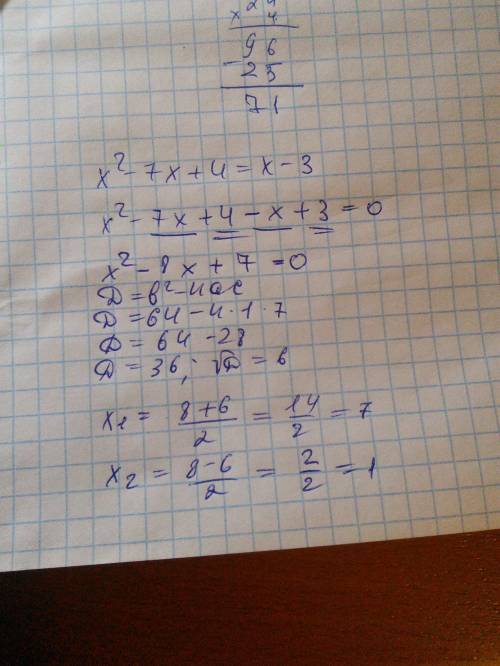 × 24
4
96
- 25
71
x² - 7x + 4 = x - 3
x² - 7x + 4 - x + 3 = 0
x² - 8x + 7 = 0
Д = в² - 4ac
Д = 64 - 4·1·7
Д = 64 - 28
Д = 36; √Д = 6
x₁ = (8+6)/2 = 14/2 = 7
x₂ = (8-6)/2 = 2/2 = 1